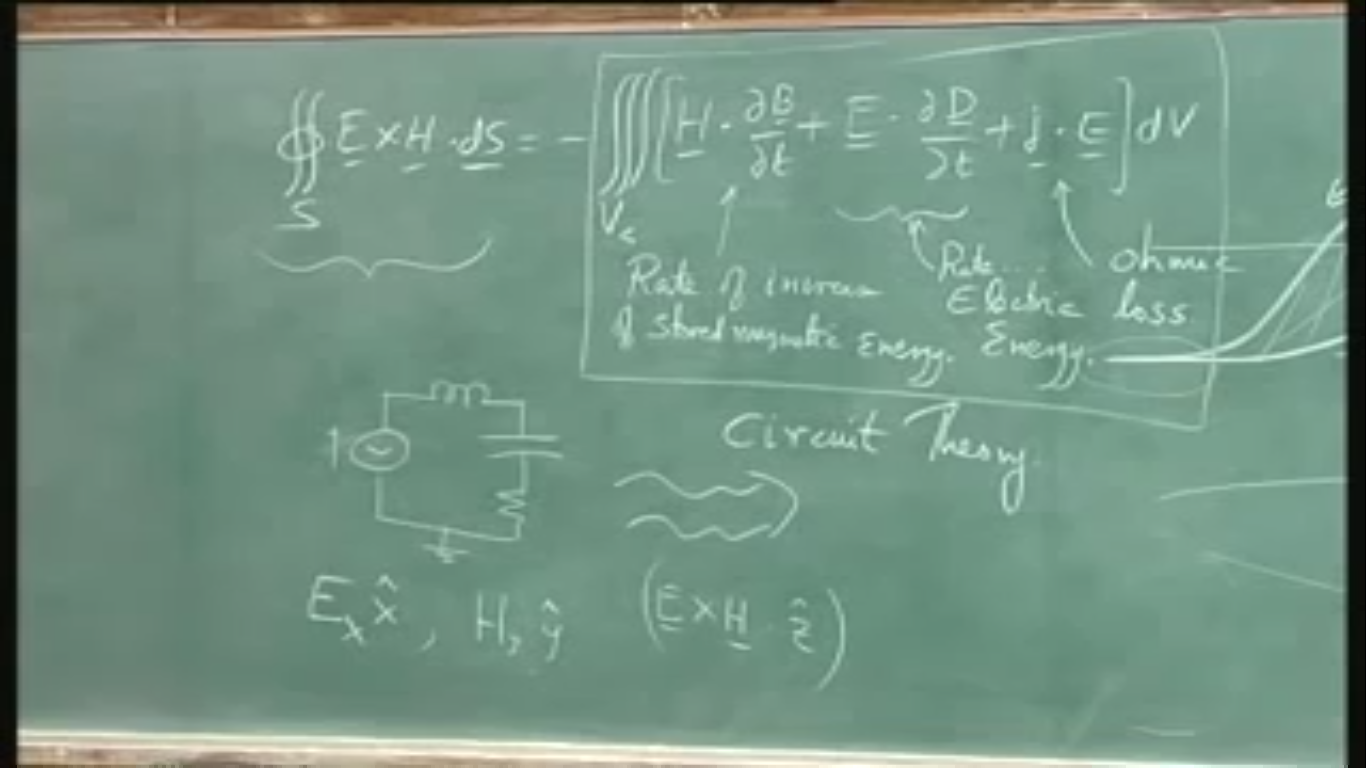 ∯ E × H · dS = − ∭ [ H · ∂B/∂t + E · ∂D/∂t + j · E ] dV
S
V
Rate of increase
of stored magnetic Energy.
Rate....
Electric
Energy.
ohmic
loss
Circuit Theory
Eₓ x̂ , H_y ŷ (E × H · ẑ)